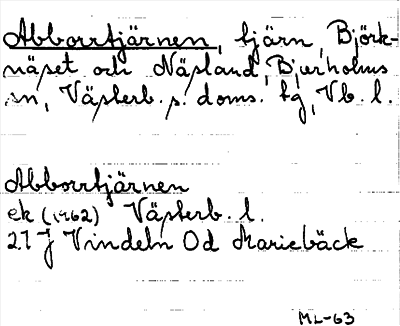 Abborrtjärnen, tjärn, Björk-
näset och Näsland, Bjurholms
sn, Västerb. s. doms. tg, Vb. l.
Abborrtjärnen
ek (1962) Västerb. l.
21 J Vindeln 0d Mariebäck
ML-63